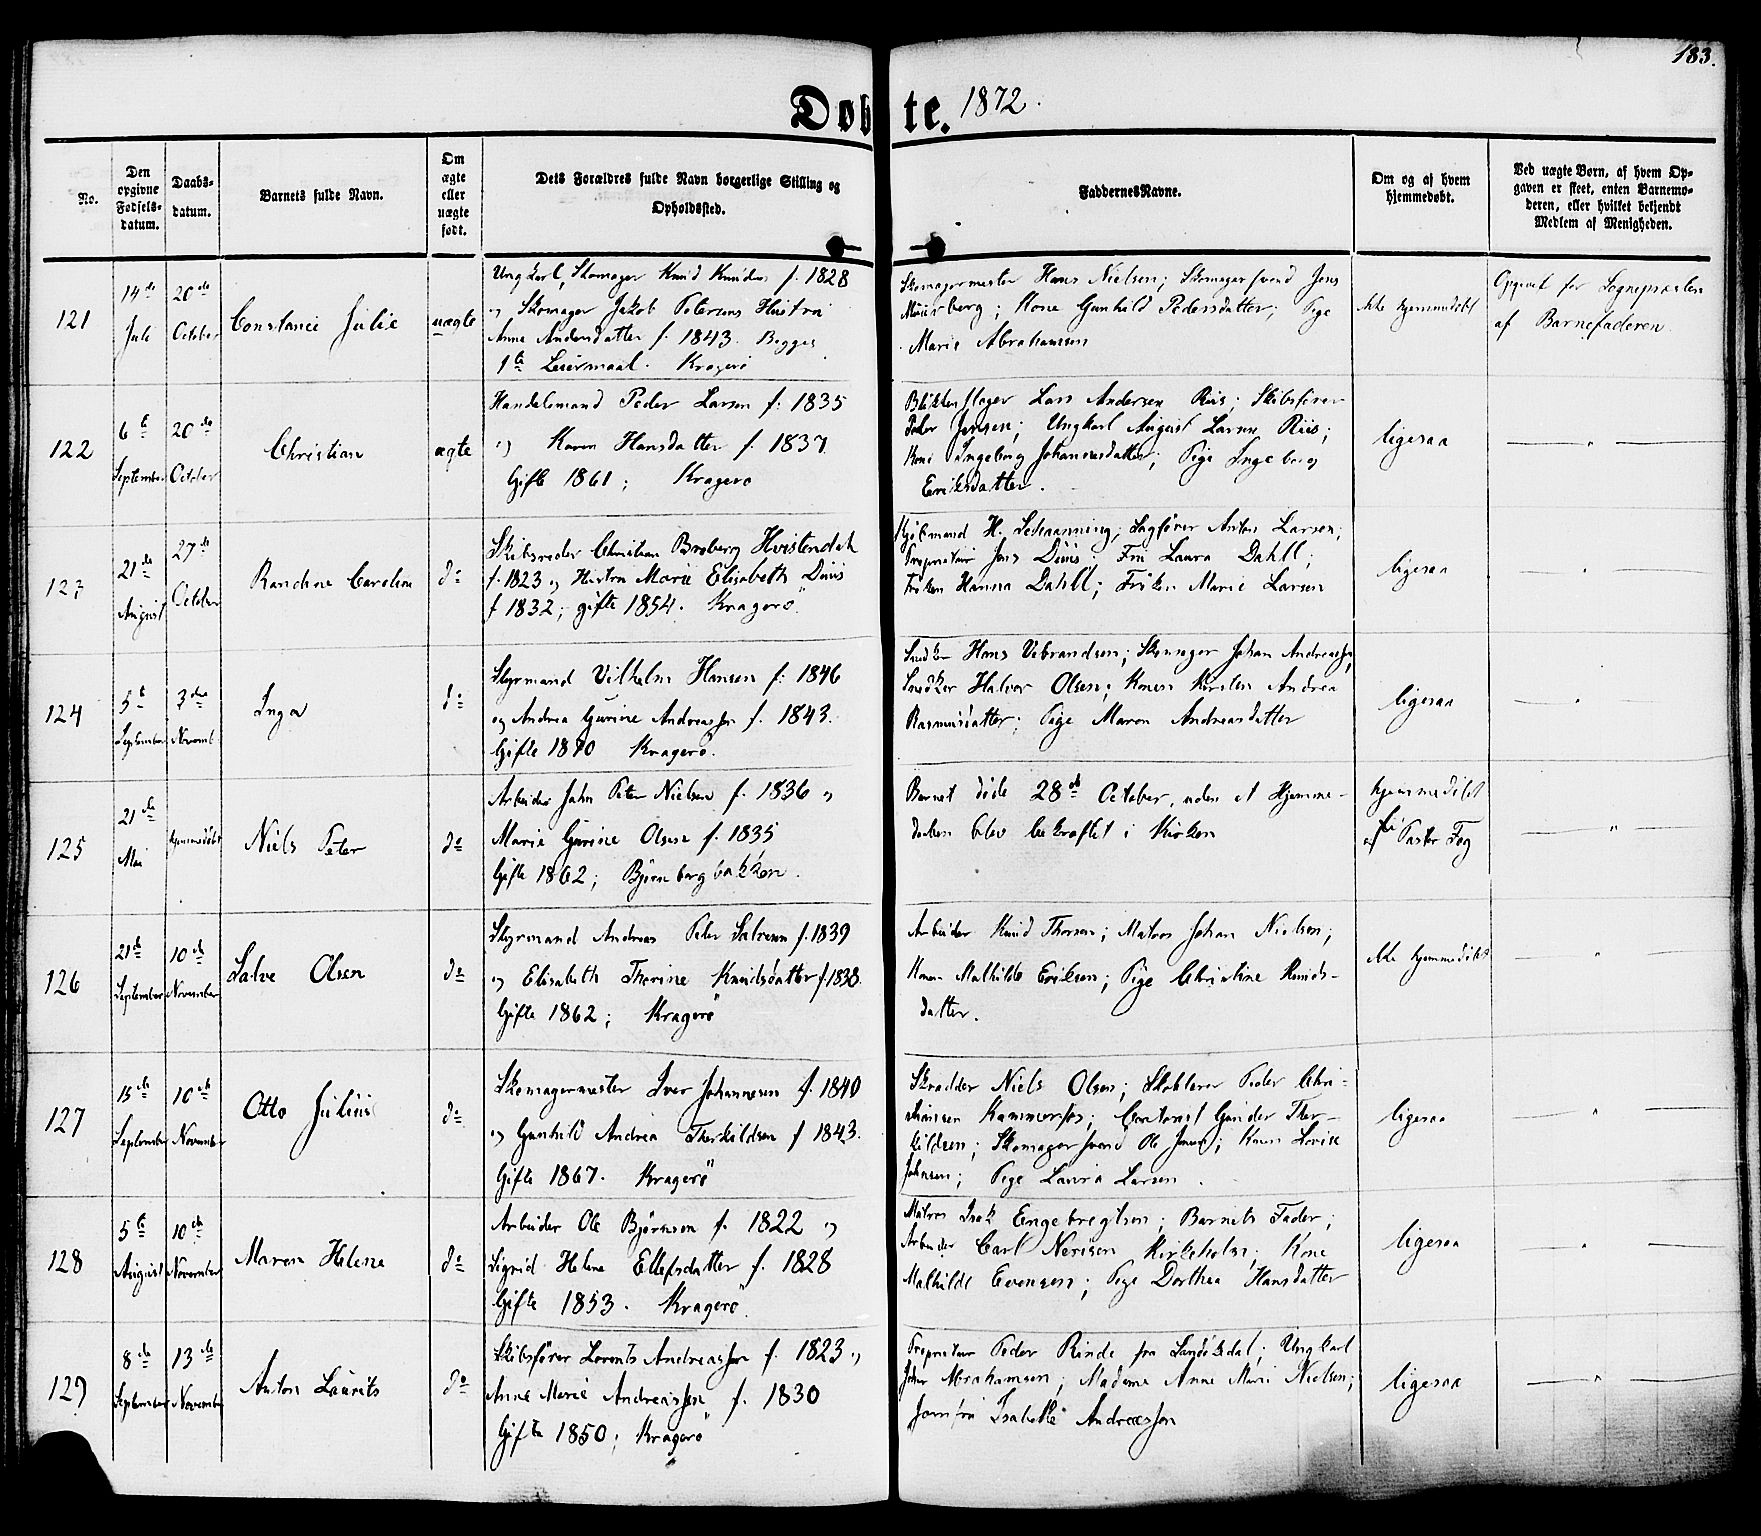 183.
Døbte. 1872.
No.
Den opgivne Fødsels-datum.
Daabs-datum.
Barnets fulde Navn.
Om ægte eller uægte født.
Dets Forældres fulde Navn borgerlige Stilling og Opholdssted.
Faddernes Navne.
Om og af hvem hjemmedøbt.
Ved uægte Børn, af hvem Op-
gaven er skeet, enten Barnemo-
deren, eller hvilket bekjendt
Medlem af Menigheden.
121
14de Juli
20de October
Constance Julie
uægte
Ungkarl, Skomager Knud Knudsen f. 1828
og Skomager Jakob Petersens Hustru
Anne Andersdatter f. 1843. Begges
1te Leiermaal. Kragerø
Skomagermester Hans Nielsen; Skomagersvend Jens
Murberg; Kone Gunhild Pedersdatter; Pige
Marie Abrahamsen
ikke hjemmedøbt
Opgivet for Sognepræsten
af Barnefaderen.
122
6te September
20de October
Christian
ægte
Handelsmand Peder Larsen f. 1835
og Karen Hansdatter f. 1837.
Gift 1861; Kragerø
Blikkenslager Lars Andersen Riis; Skibsfører
Peder Jensen; Ungkarl August Larsen Riis;
Kone Ingeborg Johannesdatter; Pige Ingeborg
Eriksdatter.
ligesaa
— " —
123
21de August
27de October
Randine Caroline
do
Skibsreder Christian Broberg Hvistendah
f. 1823 og Hustru Marie Elisabeth Duus
f 1832; gifte 1854. Kragerø.
Kjøbmand H. Schanning; Sagfører Anton Larsen;
Proprietær Jens Duus; Fru Laura Dahll;
Frøken Hanna Dahll; Frøken Marie Larsen
ligesaa
— " —
124
5te September
3die Novemb
Inga
do
Styrmand Vilhelm Hansen f. 1846
og Andrea Gurine Andreassen f. 1843.
Gifte 1870 Kragerø.
Snedker Hans Vebrandsen; Skomager Johan Andreassen,
Snedker Halvor Olsen; Konen Kirsten Andrea
Rasmusdatter; Pige Maren Andreasdatter
ligesaa
— " —
125
21de Mai
hjemmedøbt
Niels Peter
do
Arbeider John Peter Nielsen f. 1836 og
Marie Gurine Olsen f. 1835
Gifte 1862; Bjørnbergbakken.
Barnet døde 28de October, uden at Hjemme-
daaben blev bekræftet i Kirken
hjemmedøbt
af Pastor Fog
— " —
126
21de September
10de November
Salve Olsen
do
Styrmand Andreas Peter Salvesen f. 1839
og Elisabeth Therine Knudsdatter f 1838.
Gifte 1862; Kragerø
Arbeider Knud Thorsen; Matros Johan Nielsen;
Konen Mathilde Eriksen; Pige Christine Knuds-
datter.
ikke hjemmedøbt
— " —
127
15de September
10de November
Otto Julius
do
Skomagermester Iver Johannesen f. 1840
og Gunhild Andrea Therkildsen f 1843.
Gifte 1867. Kragerø
Skrædder Niels Olsen; Skoblerer Peder Chri-
stiansen Kammerfos; Contorist Gunder Ther-
kildsen; Skomagersvend Ole Jensen; Konen Lovise
Johnsen; Pige Laura Larsen.
ligesaa
— " —
128
5te August
10de November
Maren Helene
do
Arbeider Ole Bjørnsen f. 1822 og
Sigrid Helene Ellefsdatter f. 1828
Gifte 1853. Kragerø.
Matros Isak Engebregtsen; Barnets Fader;
Arbeider Carl Nerisen Kirkeholm; Kone
Mathilde Evensen; Pige Dorthea Hansdatter
ligesaa
— " —
129
8de September
13de November
Anton Laurits
do
Skibsfører Lorents Andreassen f. 1823 og
Anne Marie Andreassen f. 1830
Gifte 1850; Kragerø
Proprietær Peder Rinde fra Sandøkedal; Ungkarl
Johan Abrahamsen; Madame Anne Marie Nielsen;
Jomfru Isabelle Andreassen
ligesaa
— " —